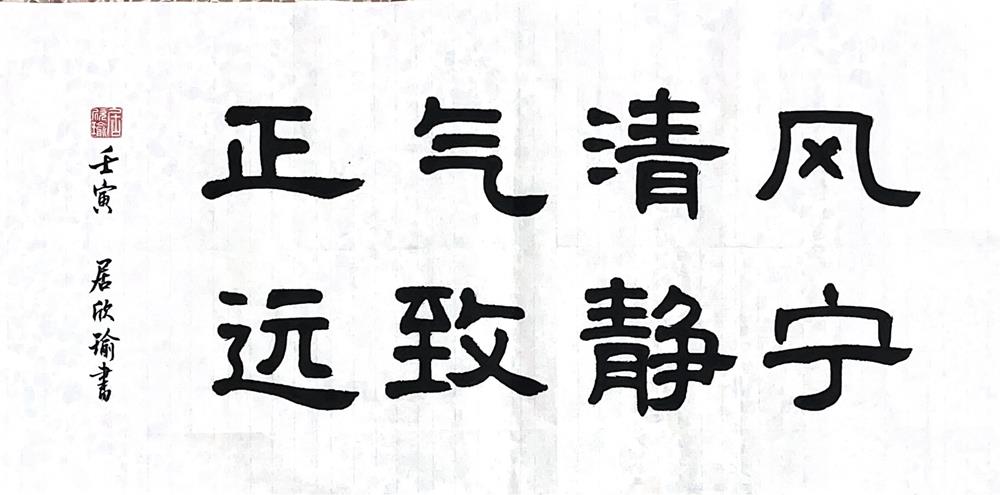 风清气正
宁静致远
壬寅 居欣瑜書
居欣瑜